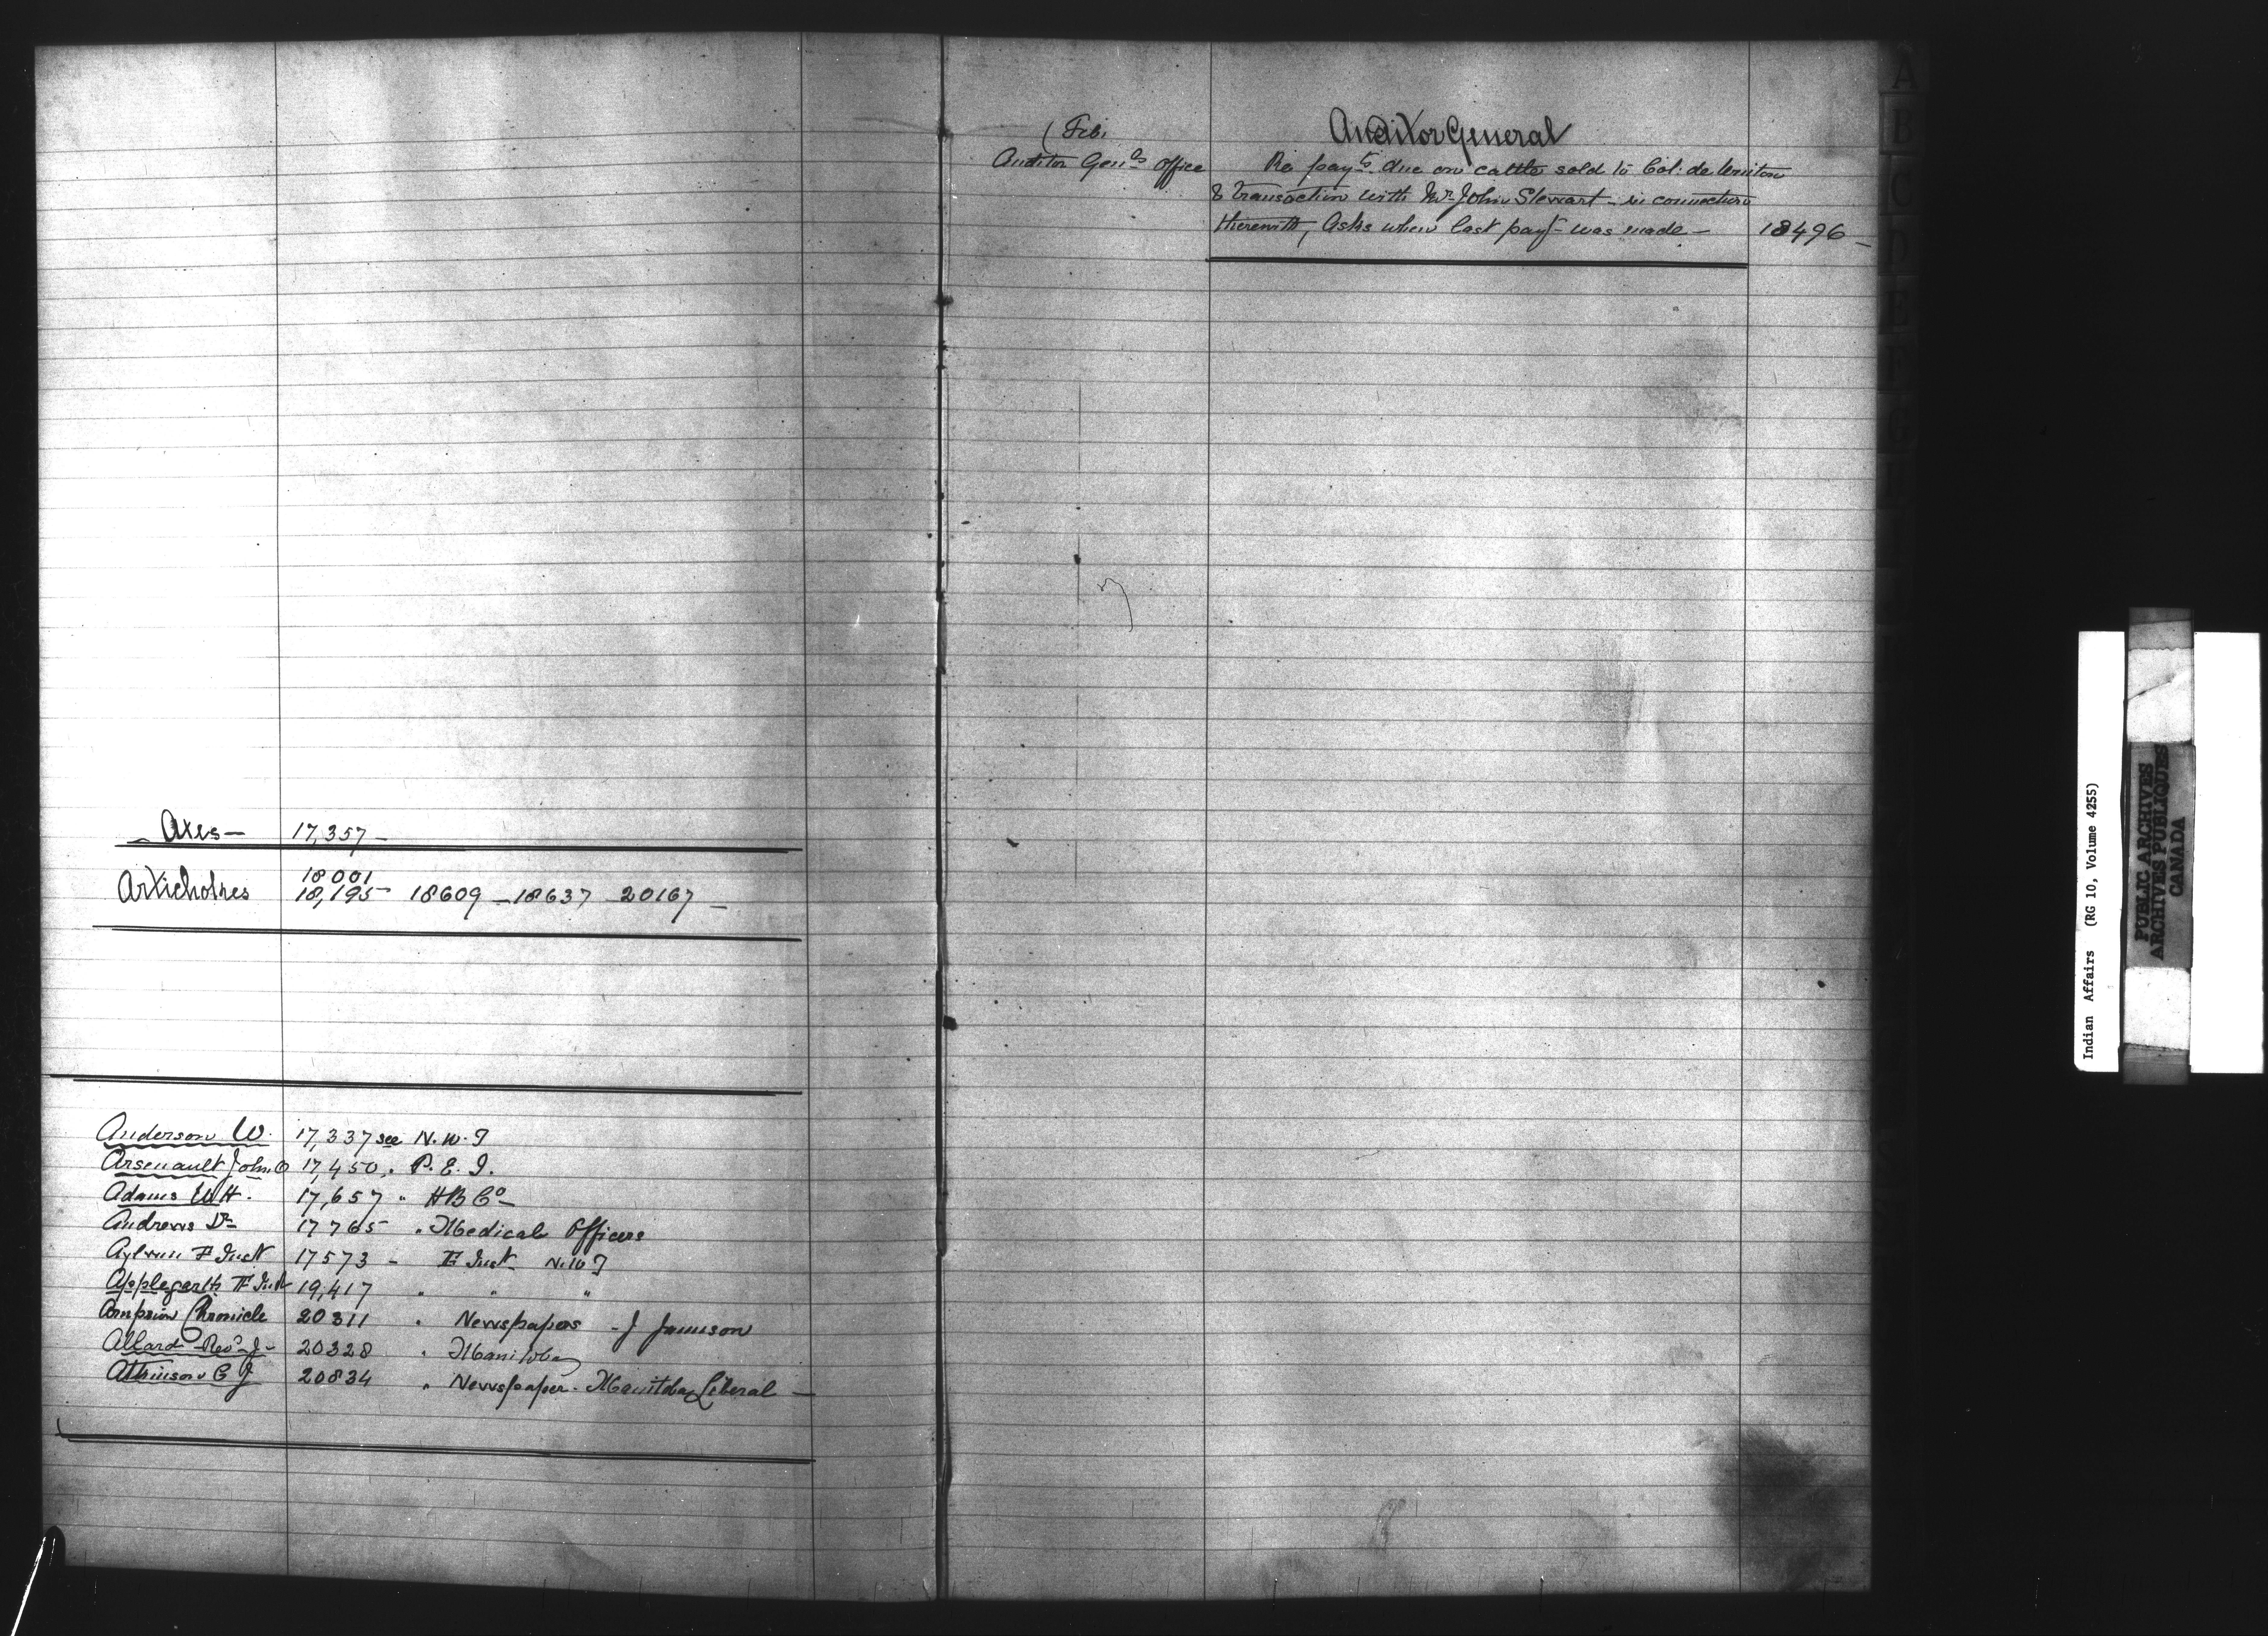 Axes — 17,357 —
18001
Artichokes 18,195 18609 — 18637 20167 —
Anderson W. 17,337 see N.W.T
Arsenault John O 17,450 " P.E.I.
Adams W H. 17,657 " H B Co
Andrews Dr 17765 " Medical Officers
Aylwin F Inst 17573 - F Inst N.W T
Applegarth F Inst 19,417 " " "
Arnprior Chronicle 20311 " Newspapers - J Jamieson
Allard Revd J - 20328 " Manitoba
Atkinson C J 20834 " Newspaper - Manitoba Liberal —
Auditor General
( Feb.
Auditor Genls Office Re payts. due on cattle sold to Col: de Winton
& transaction with Mr John Stewart - in connection
therewith, Asks when last payt was made — 18496 —
A
B
C
D
E
F
G
Indian Affairs (RG 10, Volume 4255)
PUBLIC ARCHIVES
ARCHIVES PUBLIQUES
CANADA